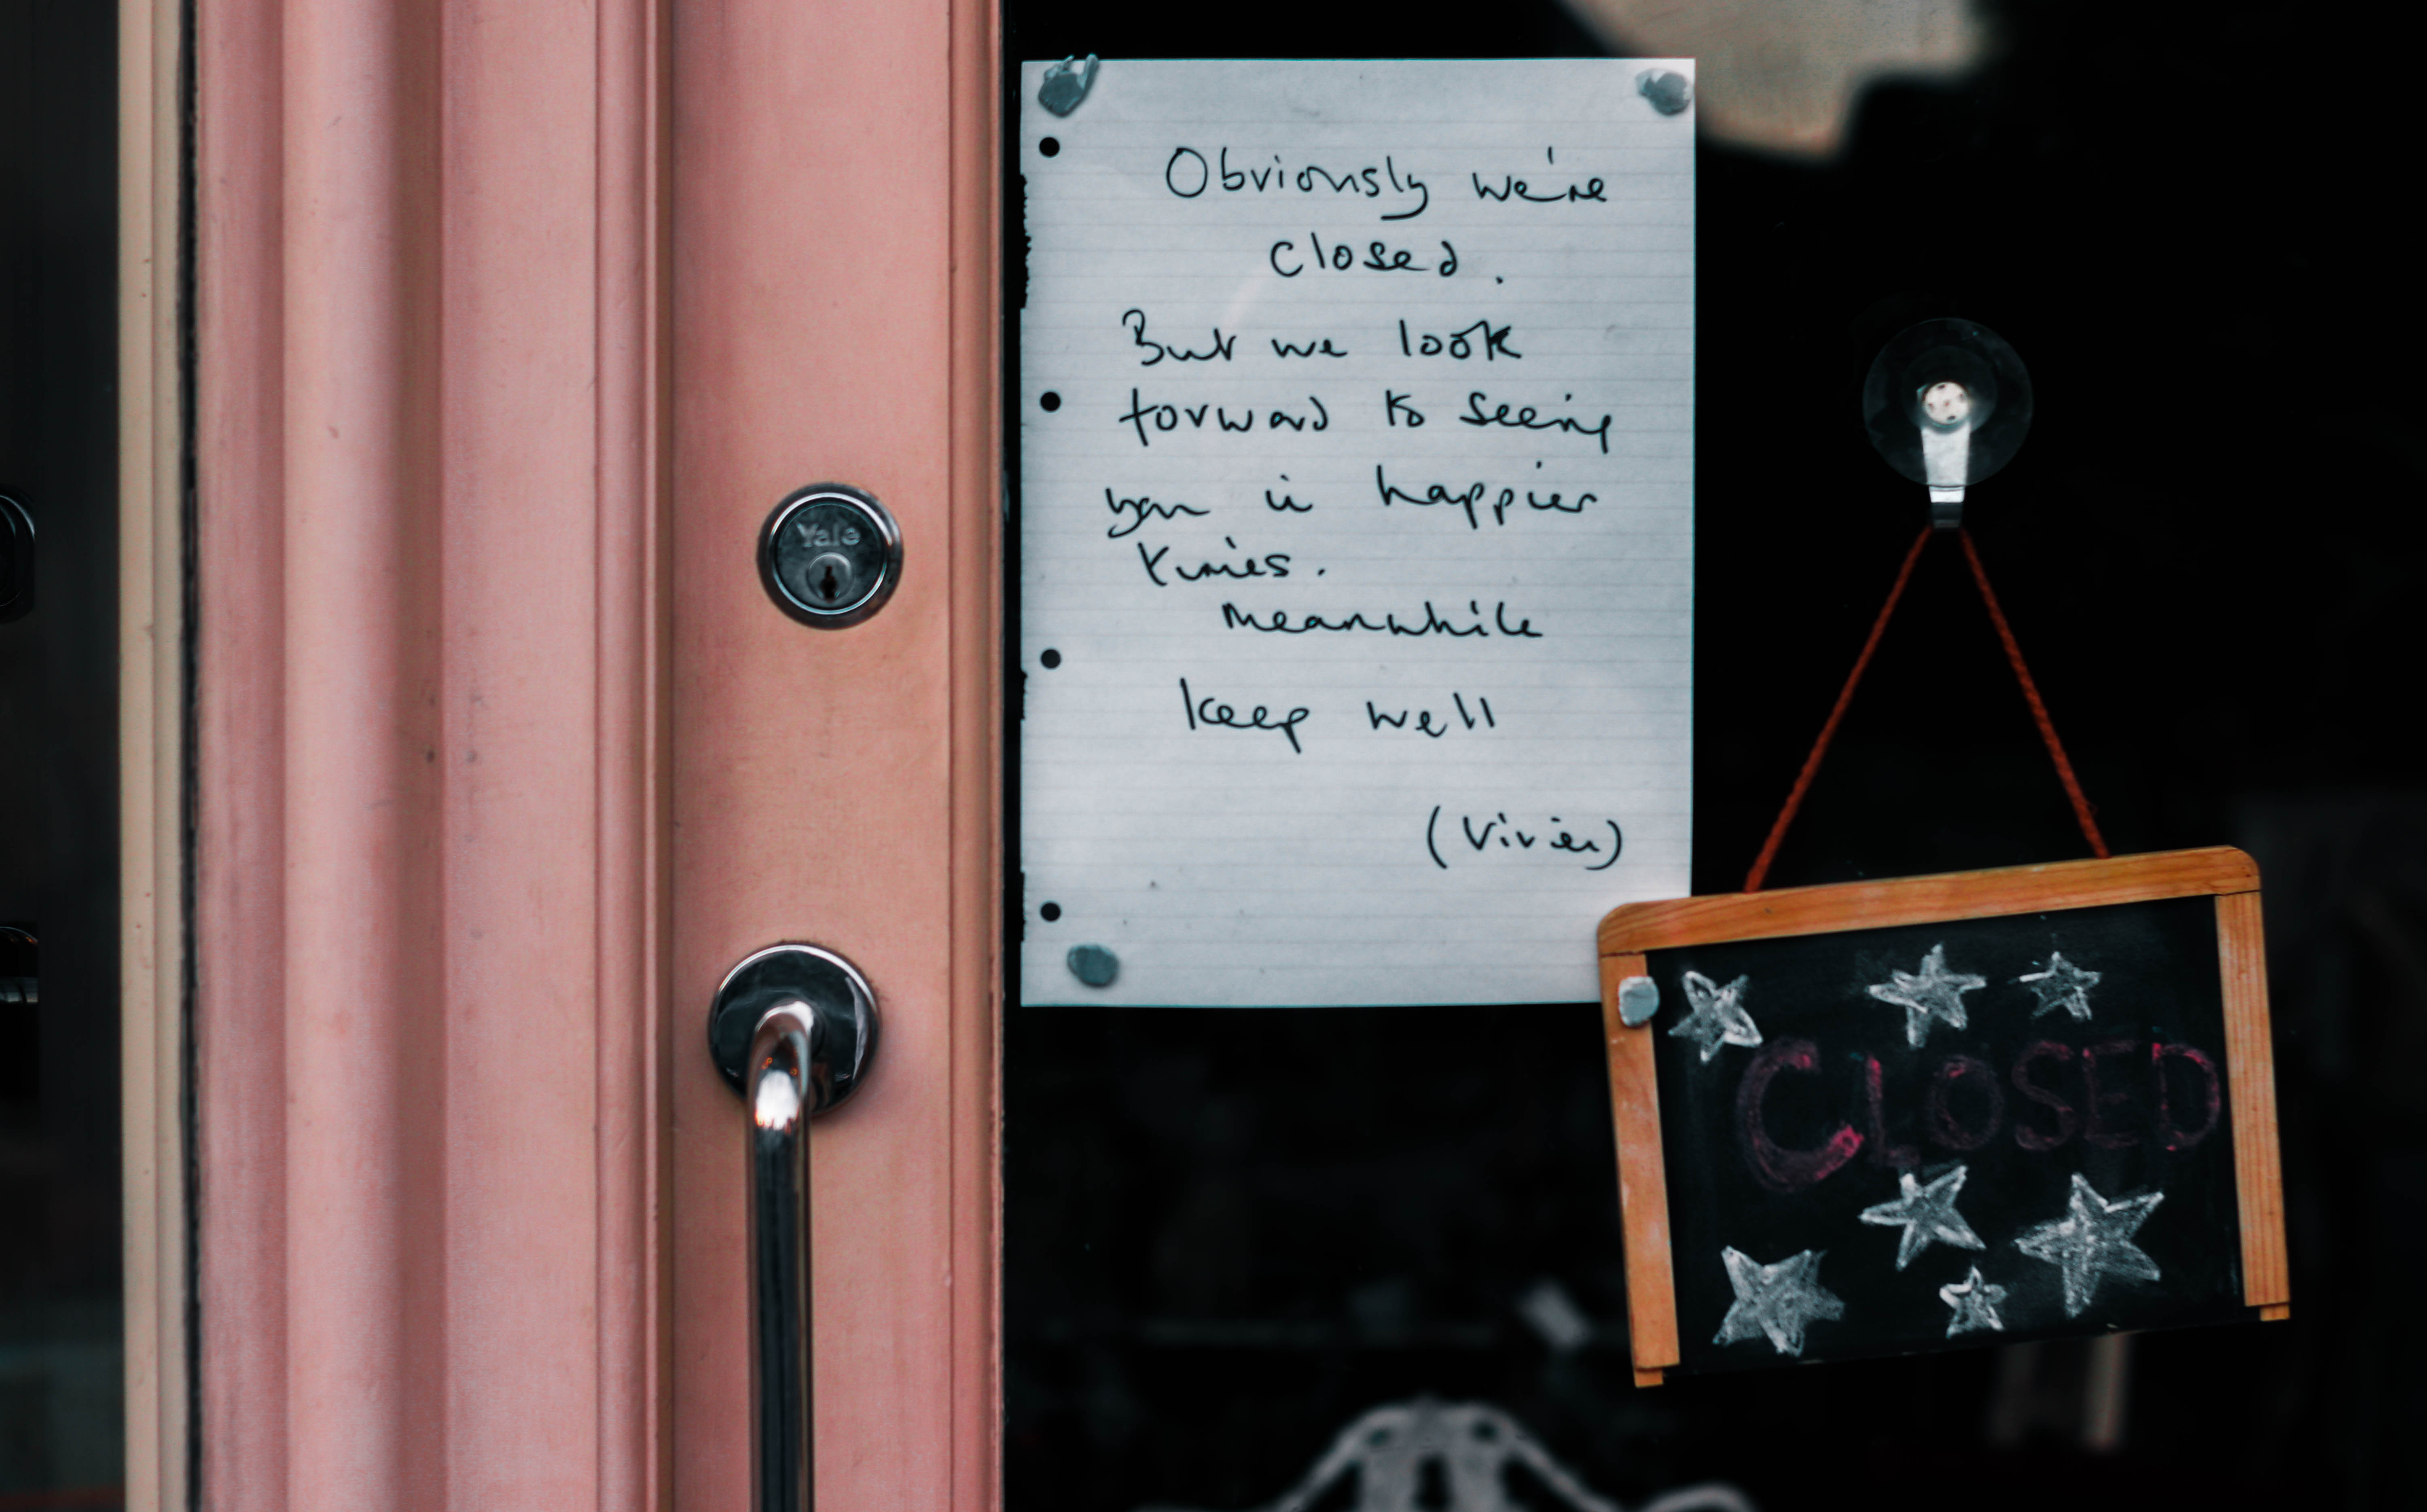 Yale
Obviously we're
closed.
But we look
forward to seeing
you in happier
times.
Meanwhile
keep well
CLOSED